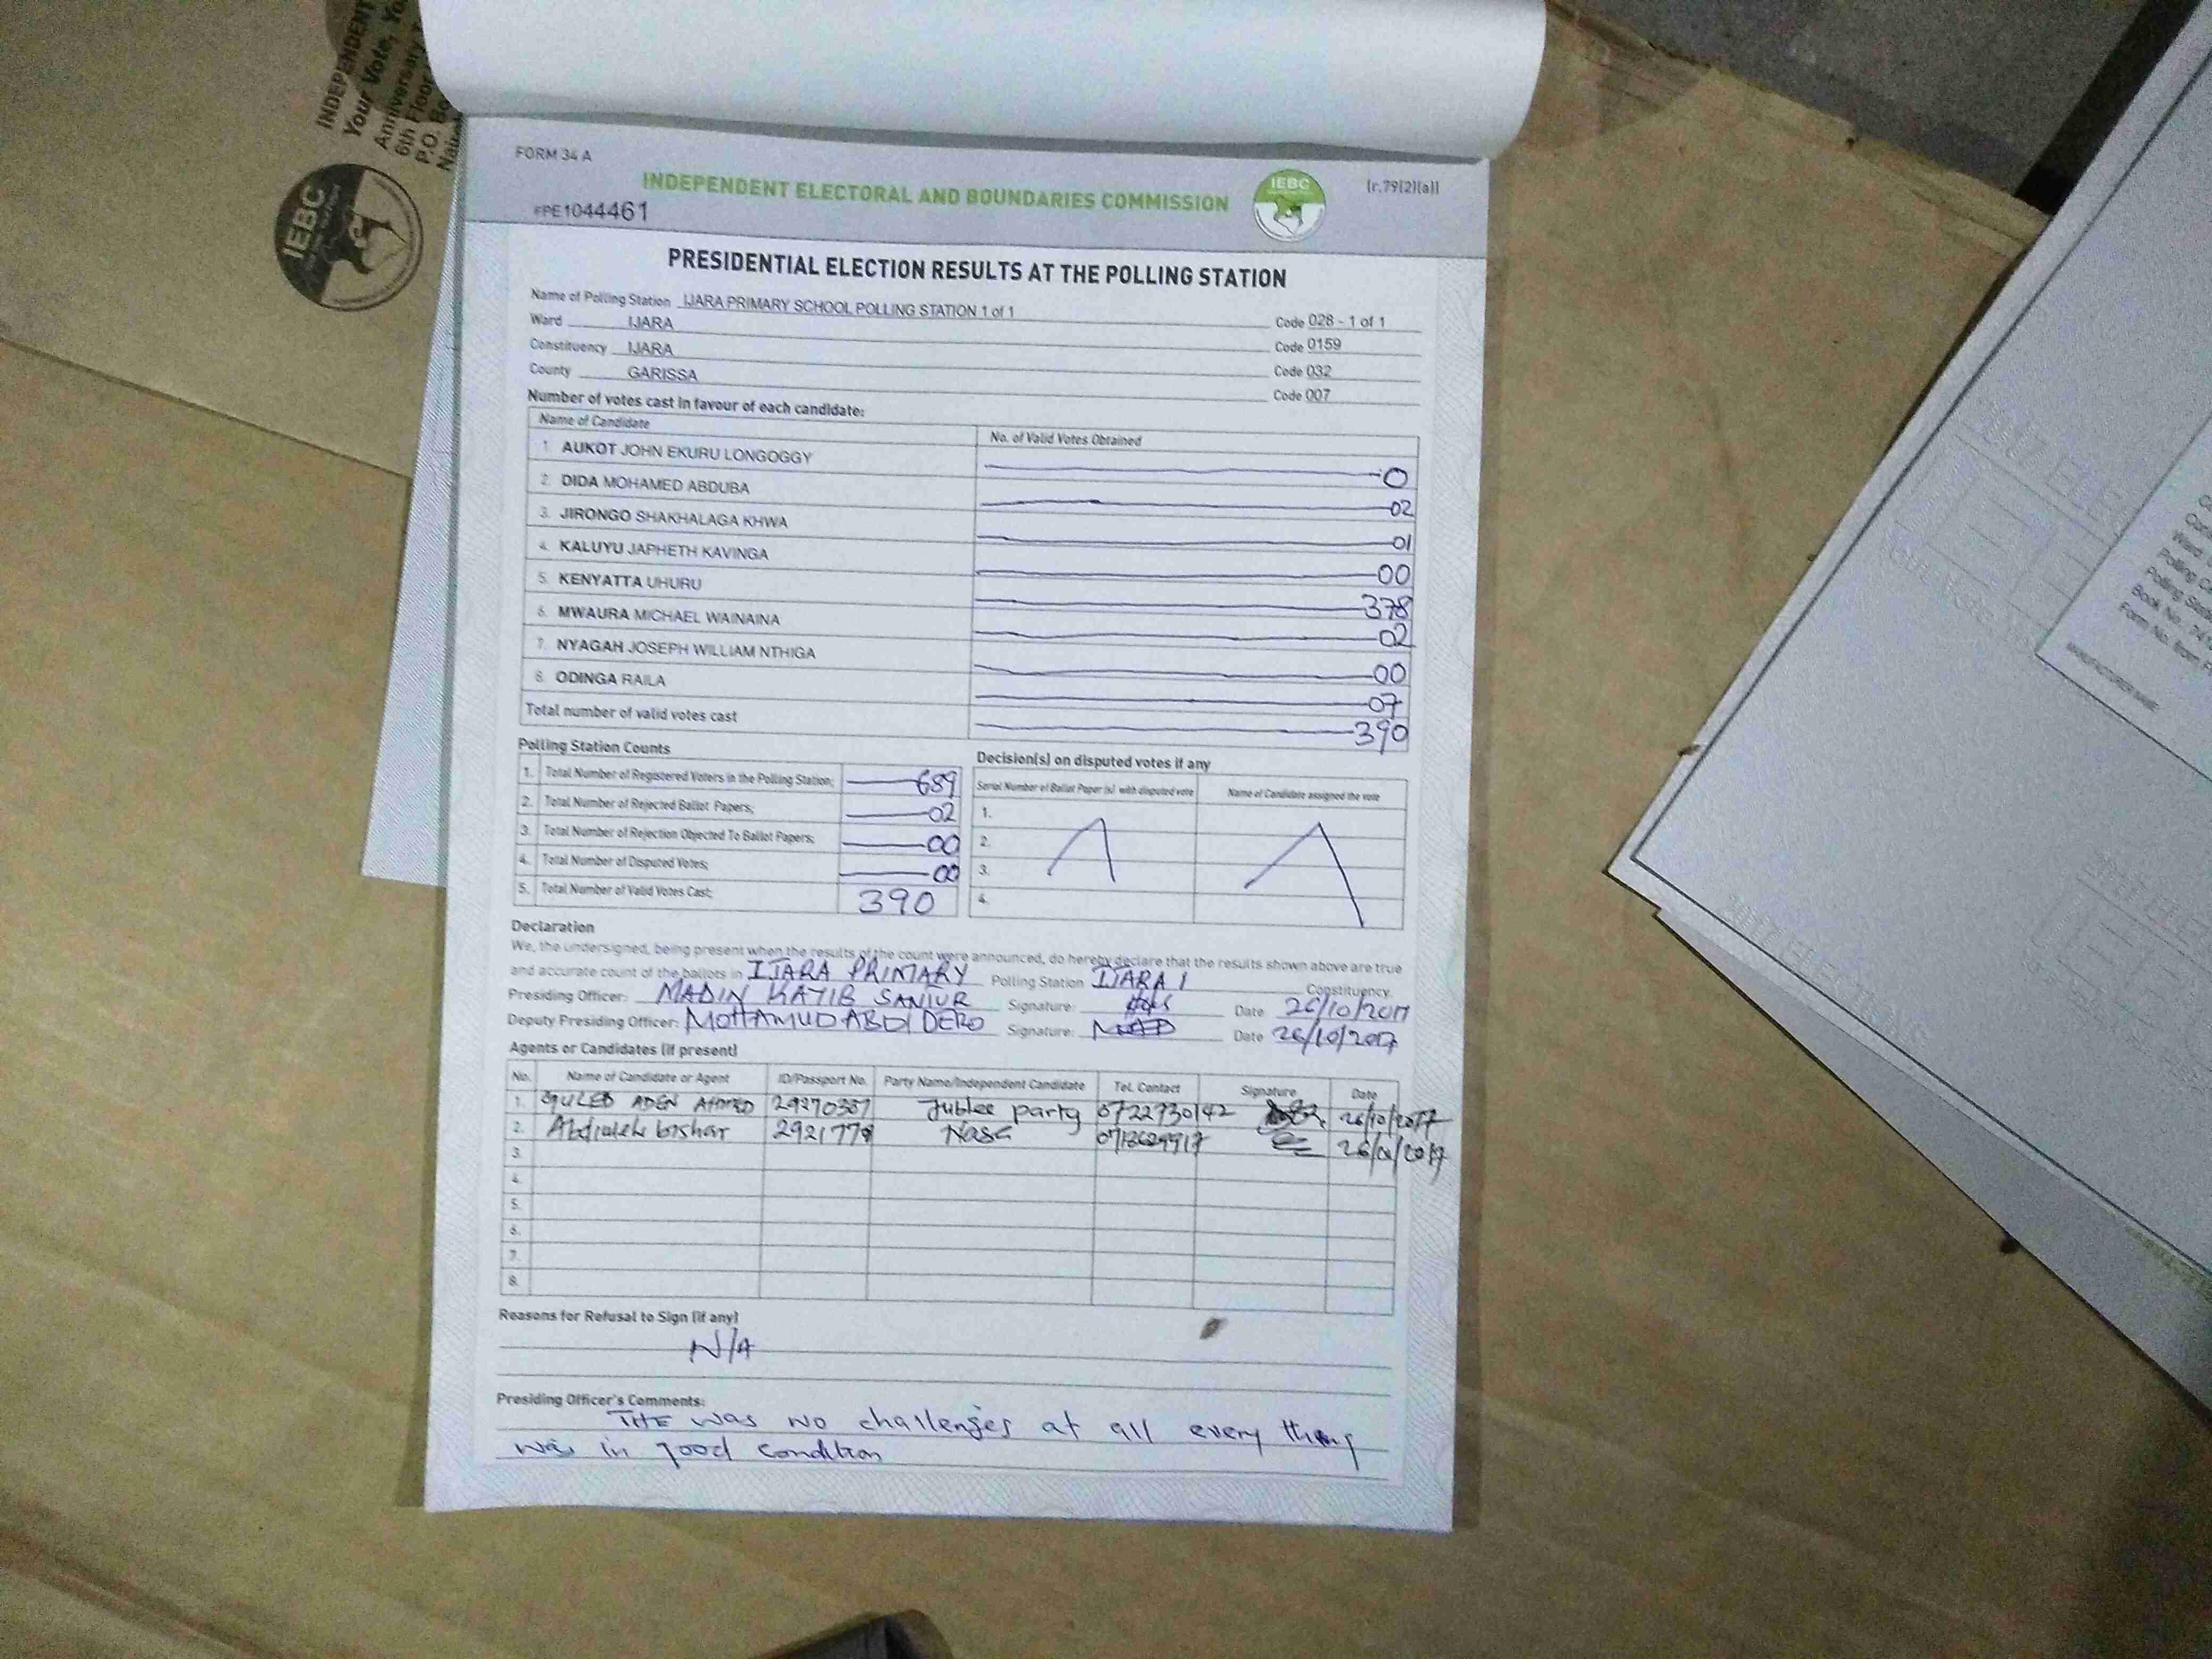 INDEPENDENT
Your Vote,
Anniversary
6th Floor
P.O. Bo
IEBC
FORM 34 A
INDEPENDENT ELECTORAL AND BOUNDARIES COMMISSION
IEBC
(r.79(2)(a))
#PE1044461
PRESIDENTIAL ELECTION RESULTS AT THE POLLING STATION
Name of Polling Station IJARA PRIMARY SCHOOL POLLING STATION 1 of 1 Code 028 - 1 of 1
Ward IJARA Code 0159
Constituency IJARA Code 032
County GARISSA Code 007
Number of votes cast in favour of each candidate:
Name of Candidate No. of Valid Votes Obtained
1. AUKOT JOHN EKURU LONGOGGY 0
2. DIDA MOHAMED ABDUBA 02
3. JIRONGO SHAKHALAGA KHWA 01
4. KALUYU JAPHETH KAVINGA 00
5. KENYATTA UHURU 378
6. MWAURA MICHAEL WAINAINA 02
7. NYAGAH JOSEPH WILLIAM NTHIGA 00
8. ODINGA RAILA 07
Total number of valid votes cast 390
Polling Station Counts
1. Total Number of Registered Voters in the Polling Station; 689
2. Total Number of Rejected Ballot Papers; 02
3. Total Number of Rejection Objected To Ballot Papers; 00
4. Total Number of Disputed Votes; 00
5. Total Number of Valid Votes Cast; 390
Decision(s) on disputed votes if any
Serial Number of Ballot Paper (s) with disputed vote Name of Candidate assigned the vote
1.
2.
3.
4.
Declaration
We, the undersigned, being present when the results of the count were announced, do hereby declare that the results shown above are true
and accurate count of the ballots in IJARA PRIMARY Polling Station IJARA 1 Constituency.
Presiding Officer: MADIN KATIB SANIUR Signature: Date 26/10/2017
Deputy Presiding Officer: MOHAMUD ABDI DERO Signature: Date 26/10/2017
Agents or Candidates (if present)
No. Name of Candidate or Agent ID/Passport No. Party Name/Independent Candidate Tel. Contact Signature Date
1. GULED ADEN AHMED 29270357 Jublee party 0722730142 26/10/2017
2. bishar Nasa 26/10/2017
3.
4.
5.
6.
7.
8.
Reasons for Refusal to Sign (if any)
N/A
Presiding Officer's Comments:
THE was no challenges at all every thing
was in good condition
Polling
Book No.
Form No. from
MANUFACTURER NAME: